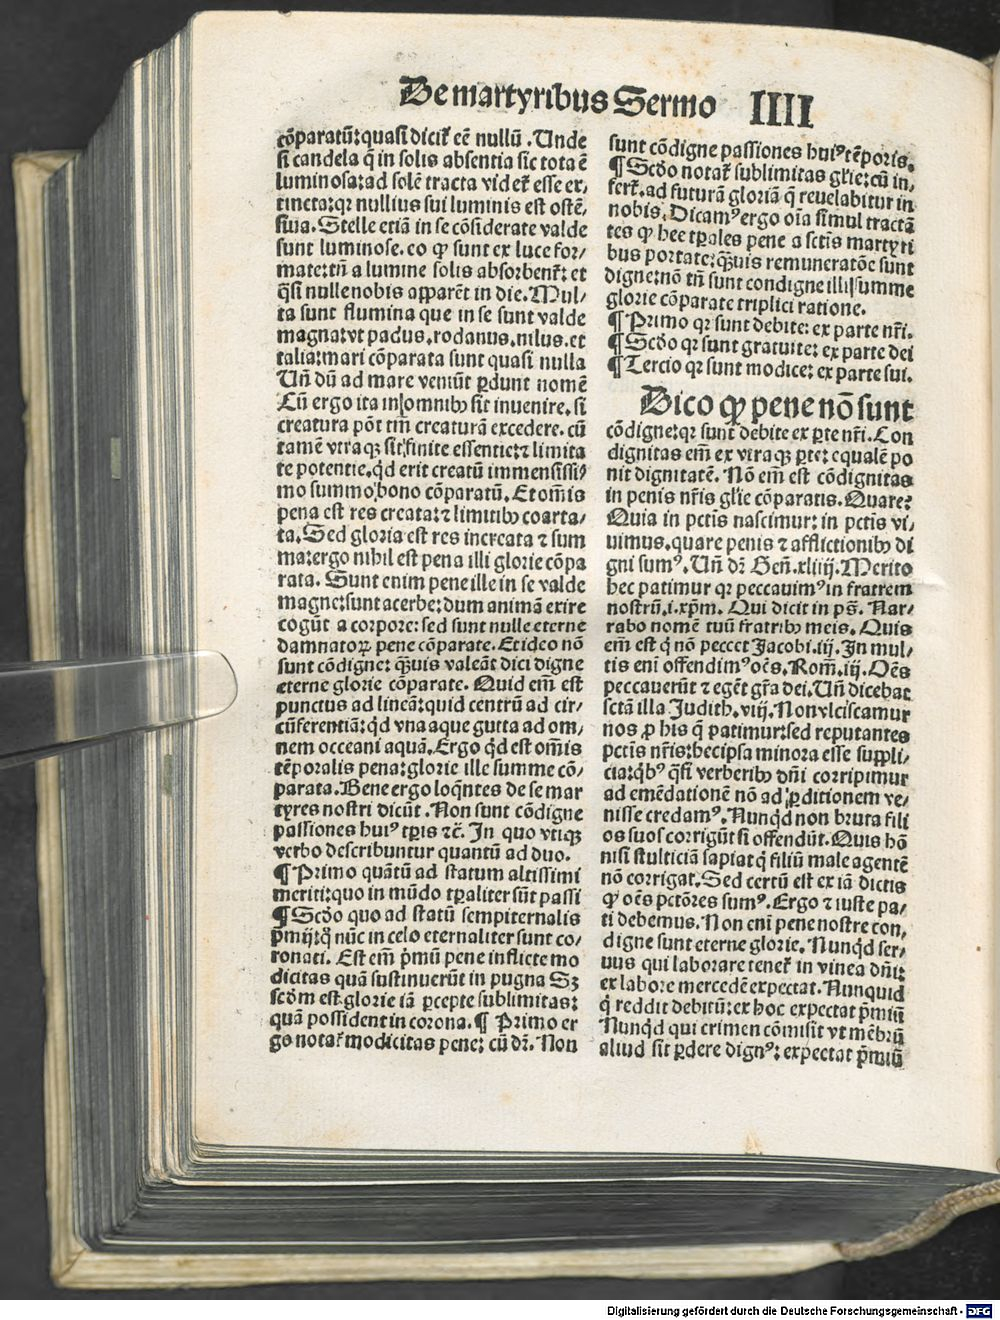 De martyribus Sermo IIII
cōparatū: quasi dicit᷑ eē nullū . Unde
si candela q̄ in solis absentia sic tota ē
luminosa: ad solē tracta videt᷑ esse ex⸗
tincta: qꝛ nullius sui luminis est ostē⸗
siua. Stelle etiā in se cōsiderate valde
sunt luminose. eo qꝙ sunt ex luce for⸗
mate: tn̄ a lumine solis absorbent᷑: et
q̄si nulle nobis apparēt in die. Mul⸗
ta sunt flumina que in se sunt valde
magna: vt padus, rodanus, nilus. et
talia: mari cōparata sunt quasi nulla
Un̄ dū ad mare veniūt ꝑdunt nomē
Cū ergo ita in omnibꝰ sit inuenire, si
creatura pōt tm̄ creaturā excedere. cū
tamē vtraqꝫ sit finite essentie: ⁊ limita
te potentie, qd̄ erit creatū immensissi⸗
mo summo bono cōparatū. Et om̄is
pena est res creata: ⁊ limitibꝰ coarta⸗
ta. Sed gloria est res increata ⁊ sum
ma: ergo nihil est pena illi glorie cōpa
rata. Sunt enim pene ille in se valde
magne: sunt acerbe: dum animā exire
cogūt a corpore: sed sunt nulle eterne
damnatoꝝ pene cōparate. Et ideo nō
sunt cōdigne: q̄uis valeāt dici digne
eterne glorie cōparate. Quid em̄ est
punctus ad lineā: quid centrū ad cir⸗
cūferentiā: qd̄ vna aque gutta ad om⸗
nem occeani aquā. Ergo qd̄ est om̄is
tēporalis pena: glorie ille summe cō⸗
parata. Bene ergo loq̄ntes de se mar
tyres nostri dicūt. Non sunt cōdigne
passiones huiꝰ tp̄is ⁊c̄. In quo vtiqꝫ
verbo describuntur quantū ad duo.
¶ Primo quātū ad statum altissimi
meriti: quo in mūdo tp̄aliter sūt passi
¶ Scd̄o quo ad statū sempiternalis
p̄mij: q̄ nūc in celo eternaliter sunt co⸗
ronati. Est em̄ p̄mū pene inflicte mo
dicitas quā sustinuerūt in pugna Sꝫ
scd̄m est glorie iā ꝑcepte sublimitas:
quā possident in corona. ¶ Primo er
go notat᷑ modicitas pene: cū dr̄. Non
sunt cōdigne passiones huiꝰ tēporis.
¶ Scd̄o notat᷑ sublimitas gl̄ie: cū in⸗
fert᷑. ad futurā gloriā q̄ reuelabitur in
nobis. Dicamꝰ ergo oīa simul tractā
tes qꝙ hec tp̄ales pene a sctīs martyri
bus portate: q̄uis remuneratōe sunt
digne: nō tn̄ sunt condigne illi summe
glorie cōparate triplici ratione.
¶ Primo qꝛ sunt debite: ex parte nr̄i.
¶ Scd̄o qꝛ sunt gratuite: ex parte dei
¶ Tercio qꝛ sunt modice: ex parte sui.
Dico qꝙ pene nō sunt
cōdigne: qꝛ sunt debite ex ꝑte nr̄i. Con
dignitas em̄ ex vtraqꝫ ꝑte: equalē po
nit dignitatē. Nō em̄ est cōdignitas
in penis nr̄is gl̄ie cōparatis. Quare?
Quia in pctīs nascimur: in pctīs vi⸗
uimus. quare penis ⁊ afflictionibꝰ di
gni sumꝰ. Un̄ dr̄ Gen̄. xliiij. Merito
hec patimur qꝛ peccauimꝰ in fratrem
nostrū .i. xp̄m. Qui dicit in ps̄. Nar⸗
rabo nomē tuū fratribꝰ meis. Quis
em̄ est q̄ nō peccet Jacobi. iij. In mul⸗
tis eni offendimꝰ oēs. Rom̄. iij. Oēs
peccauerūt ⁊ egēt gr̄a dei. Un̄ dicebat
sctā illa Judith. viij. Non vlciscamur
nos ꝓ his q̄ patimur: sed reputantes
pctīs nr̄is: hec ipsa minora esse suppli⸗
cia: qb̄ꝰ q̄si verberibꝰ dn̄i corripimur
ad emēdationē nō ad ꝑditionem ve⸗
nisse credamꝰ. Nunqd̄ non bruta fili
os suos corrigūt si offendūt. Quis hō
nisi stulticiā sapiat q̄ filiū male agentē
nō corrigat. Sed certū est ex iā dictis
qꝙ oēs pctōres sumꝰ. Ergo ⁊ iuste pa⸗
ti debemus. Non eni pene nostre con⸗
digne sunt eterne glorie. Nunqd̄ ser⸗
uus qui laborare tenet᷑ in vinea dn̄i:
ex labore mercedē expectat. Nunquid
q̄ reddit debitū: ex hoc expectat p̄miū
Nunqd̄ qui crimen cōmisit vt mēbrū
aliud sit ꝑdere dignꝰ: expectat p̄miū
Digitalisierung gefördert durch die Deutsche Forschungsgemeinschaft - DFG